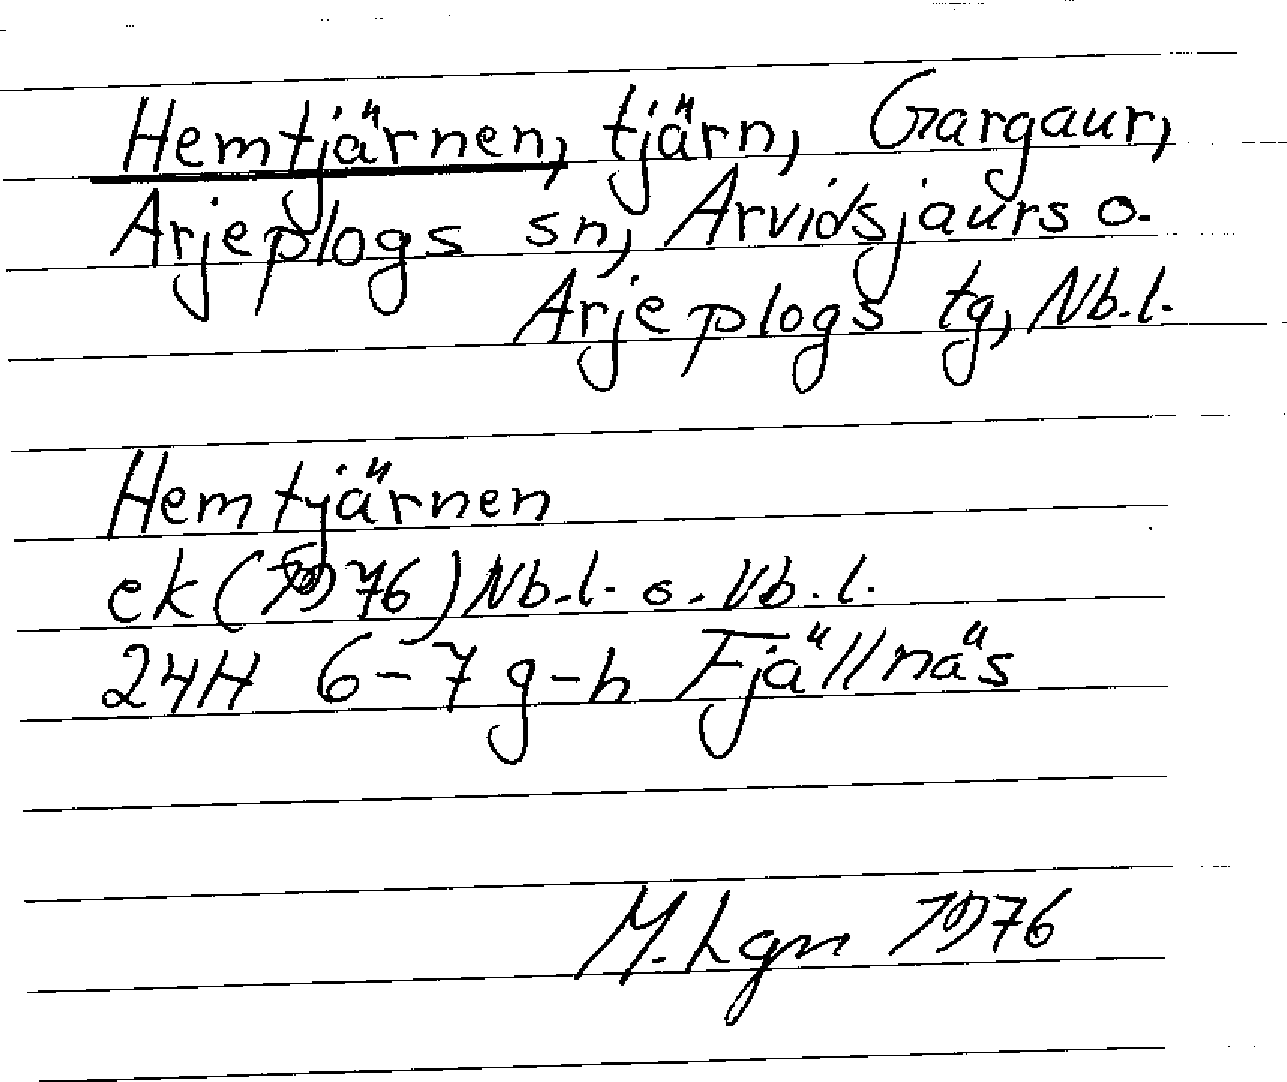 Hemtjärnen, tjärn, Gargaur,
Arjeplogs sn, Arvidsjaurs o.
Arjeplogs tg, Nb.l.
Hemtjärnen
ek (1976) Nb.l. o. Vb.l.
24H 6-7 g-h Fjällnäs
M. Lgn 1976